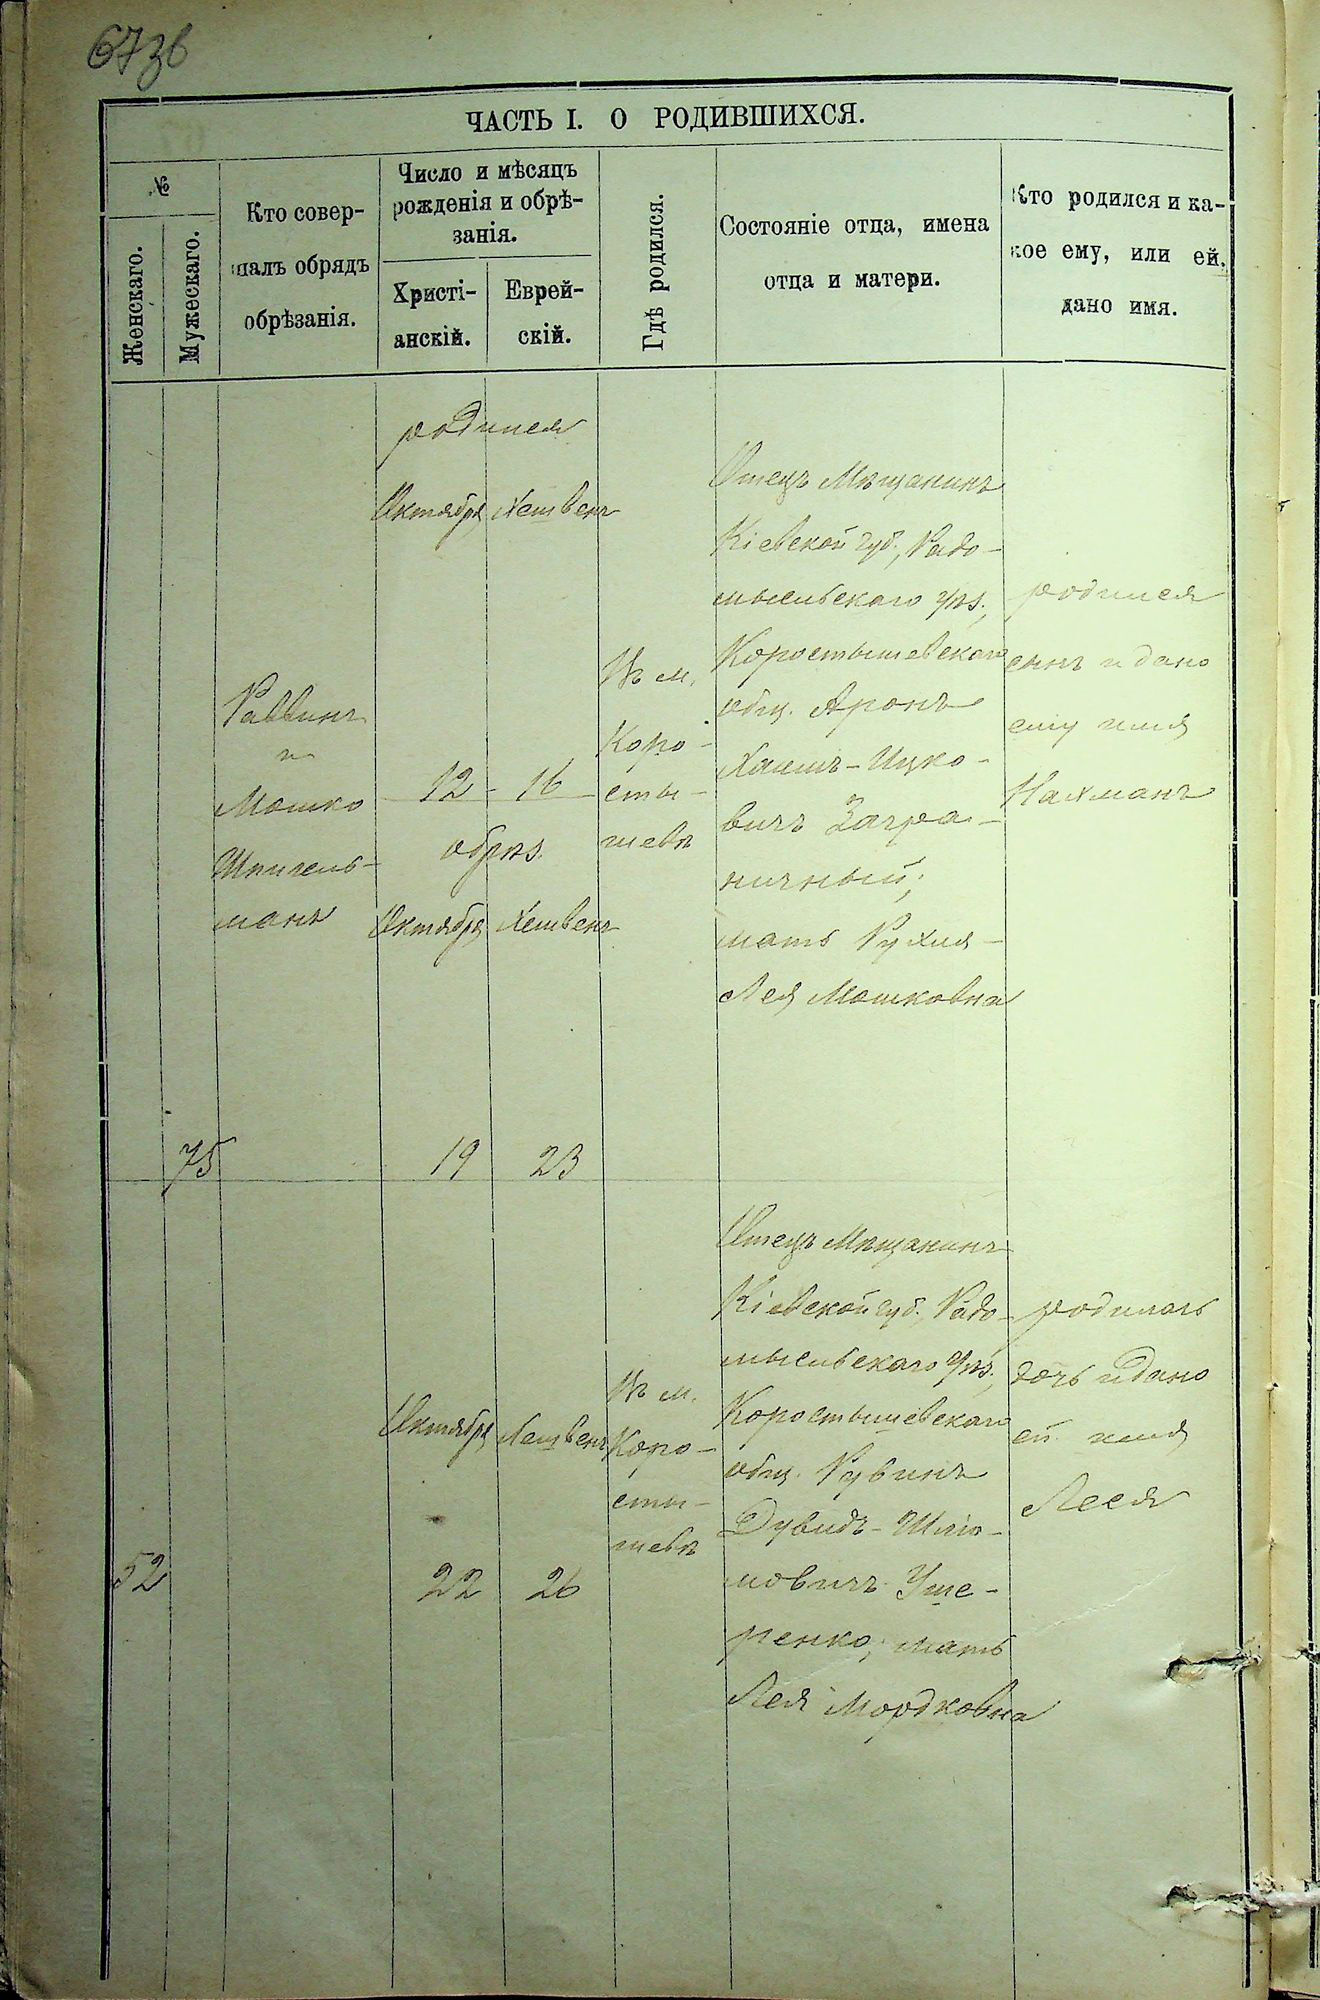 67зв
ЧАСТЬ I. О РОДИВШИХСЯ.
№
Женскаго.
Мужескаго.
Кто совер-
шалъ обрядъ
обрѣзанія.
Число и мѣсяцъ
рожденія и обрѣ-
занія.
Христі-
анскій.
Еврей-
скій.
Гдѣ родился.
Состояніе отца, имена
отца и матери.
Кто родился и ка-
кое ему, или ей,
дано имя.
75
Раввинъ
и
Мошко
Шпигель-
манъ
родился
Октября Хешвенъ
12 - 16
обрѣз.
Октября Хешвенъ
19 23
Въ м.
Коро-
сты-
шевѣ
Отецъ Мѣщанинъ
Кіевской губ., Радо-
мысльскаго уѣз.,
Коростышевскаго
общ. Аронъ
Хаимъ-Ицко-
вичъ Загра-
ничный;
мать Рухля-
Лея Мошковна
родился
сынъ и дано
ему имя
Нахманъ
52
Октября Хешвенъ
22 26
Въ м.
Коро-
сты-
шевѣ
Отецъ Мѣщанинъ
Кіевской губ., Радо-
мысльскаго уѣз.,
Коростышевскаго
общ. Рувинъ
Дувидъ-Шлió-
мовичъ Уше-
ренко; мать
Лея Мордковна
родилась
дочь и дано
ей имя
Леся